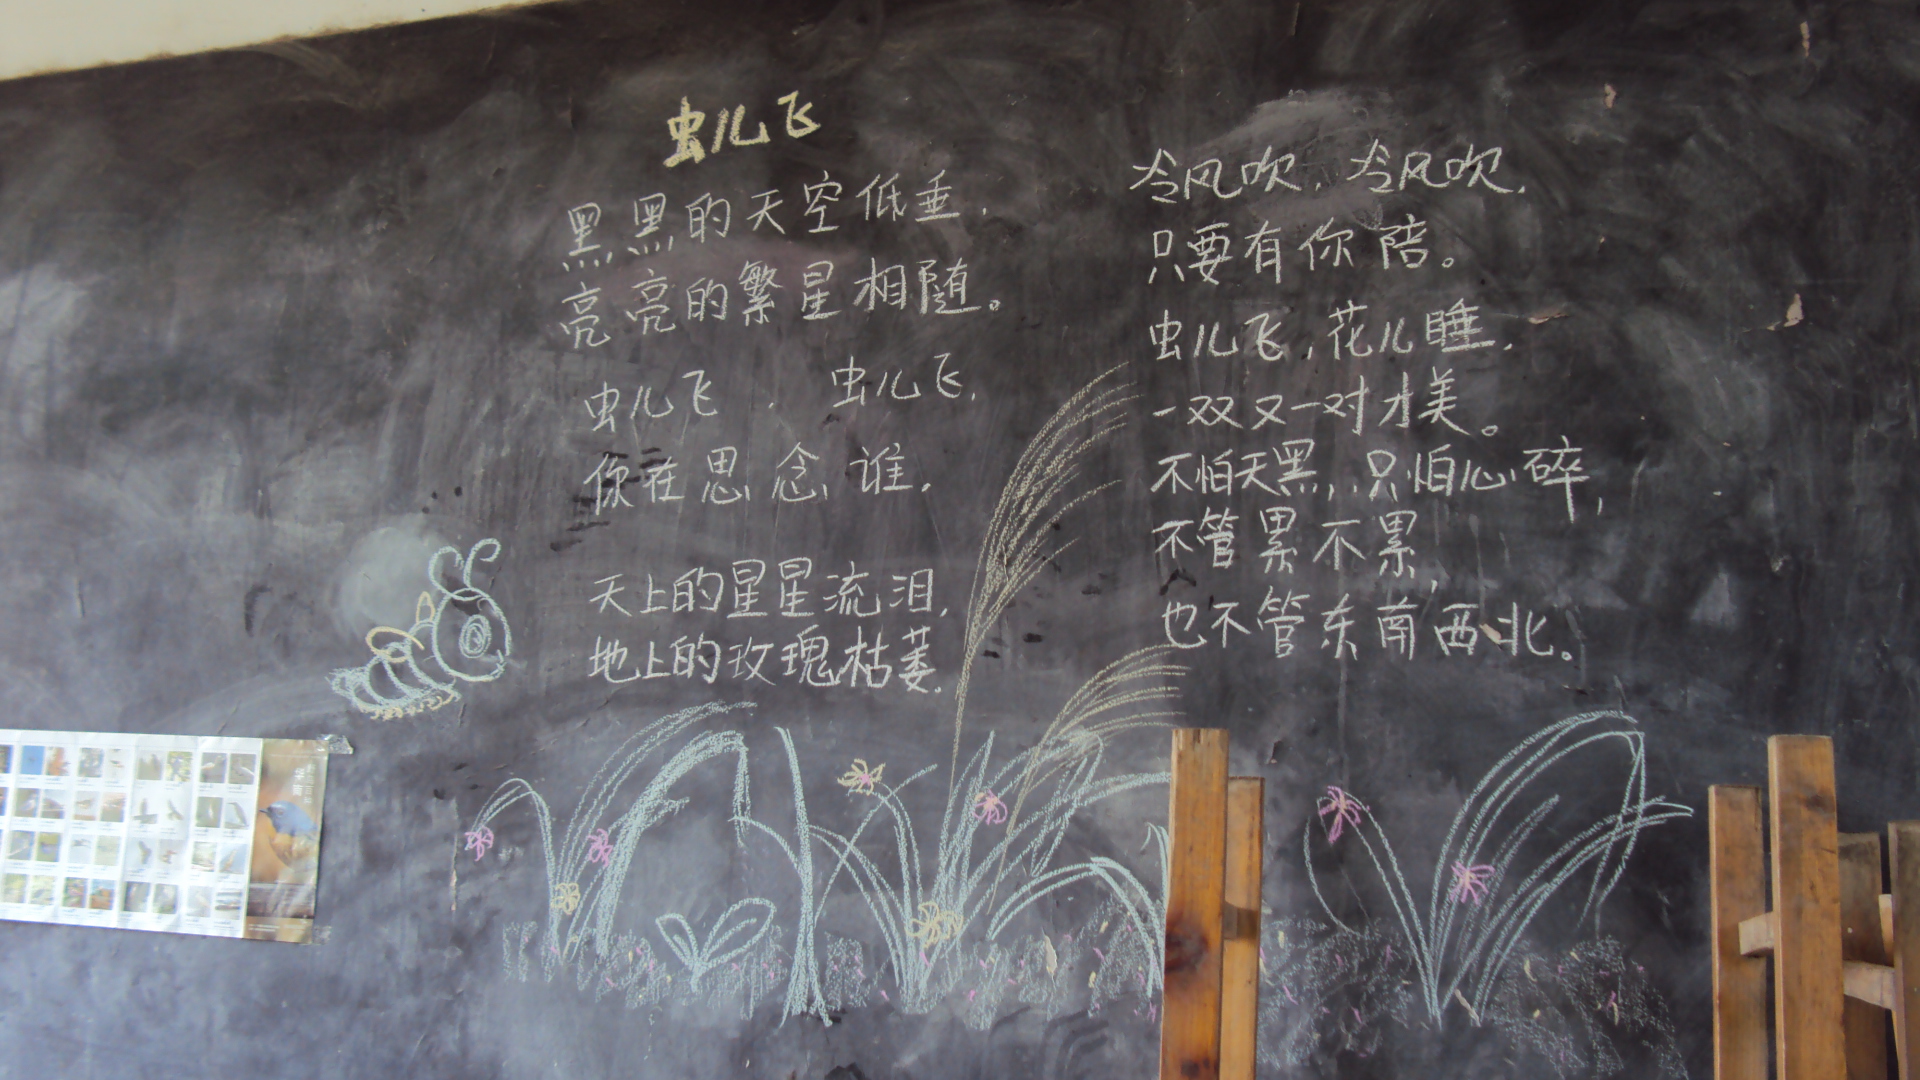 虫儿飞
黑黑的天空低垂,
亮亮的繁星相随。
虫儿飞, 虫儿飞,
你在思念谁,
天上的星星流泪,
地上的玫瑰枯萎.
冷风吹,冷风吹,
只要有你陪。
虫儿飞,花儿睡,
一双又一对才美。
不怕天黑,只怕心碎,
不管累不累,
也不管东南西北。